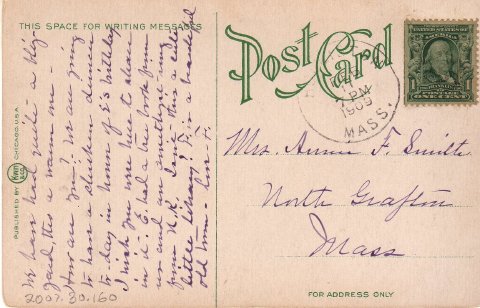 THIS SPACE FOR WRITING MESSAGES
We have had quite a
yard, tho a warm one -
How are you? We are going
to have a chicken dinner
to-day in honor of E's birthday
I wish you were here to share
in it. E. had a tree book from
us and an amethyst ring
from H.K. Isn't this a
little library? It is a beautiful
old town -
PUBLISHED BY CHICAGO, U.S.A.
2007.30.160
Post Card
1 PM
1909
MASS.
UNITED STATES OF AMERICA
FRANKLIN
ONE CENT
Mrs. Annie F. Smith
North Grafton
Mass
FOR ADDRESS ONLY